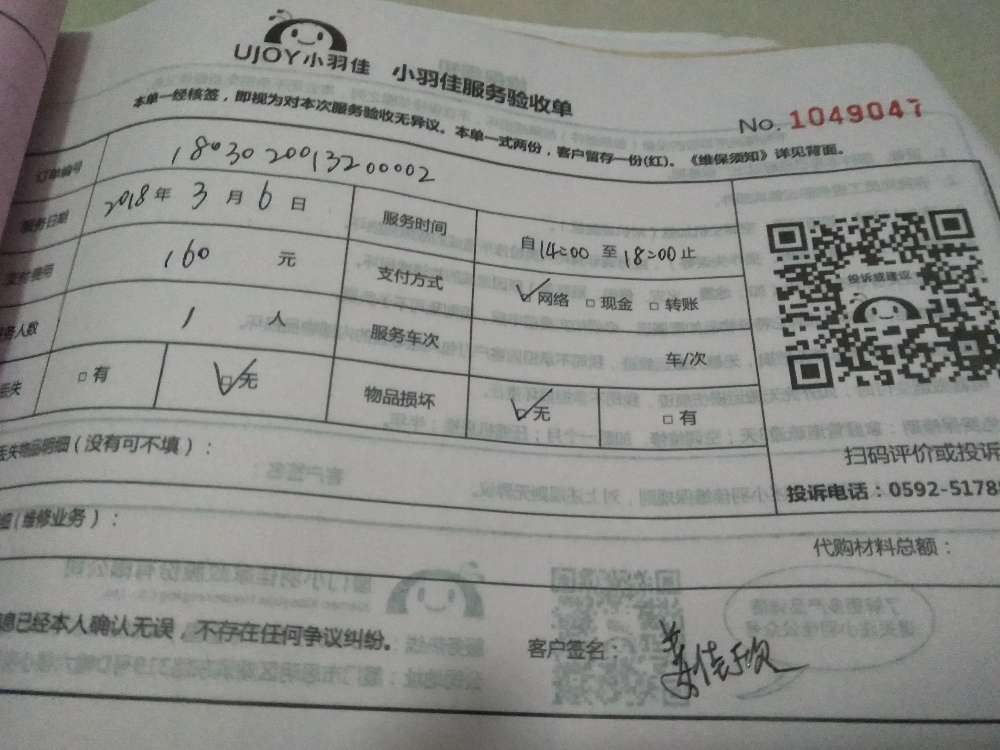 UJOY小羽佳 小羽佳服务验收单
No. 1049047
本单一经核签，即视为对本次服务验收无异议。本单一式两份，客户留存一份(红)。《维保须知》详见背面。
订单编号 1803020013200002
服务日期 2018年 3月 6日 服务时间 自14:00 至18:00止
160 元 支付方式 网络 □现金 □转账
人数 1 人 服务车次 车/次
失 □有 □无 物品损坏 □无 □有
投诉或建议
扫码评价或投诉
投诉电话：0592-5178
失物品明细(没有可不填)：
(维修业务)：
代购材料总额：
息已经本人确认无误，不存在任何争议纠纷。
客户签名：